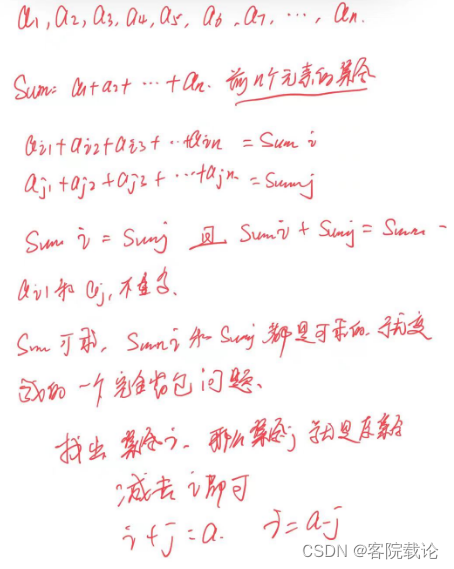 a1, a2, a3, a4, a5, a6, a7, ..., an.
Sum = a1+a2+ ... +an. 前n个元素的集合
ai1+ai2+ai3+ ...+ain = Sum i
aj1+aj2+aj3+ ...+ajn = Sumj
Sum i = Sumj 且 Sumi + Sumj = Sum
ai1和aj1不重复.
Sum可求, Sumi和Sumj都是可求的.
的一个完全背包问题.
找出集合i. 那么集合j 就是原集合
减去i即可
i+j=a. i=a-j
CSDN @客院载论